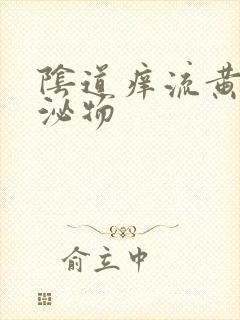 陰道癢流黃
泌物
俞立中